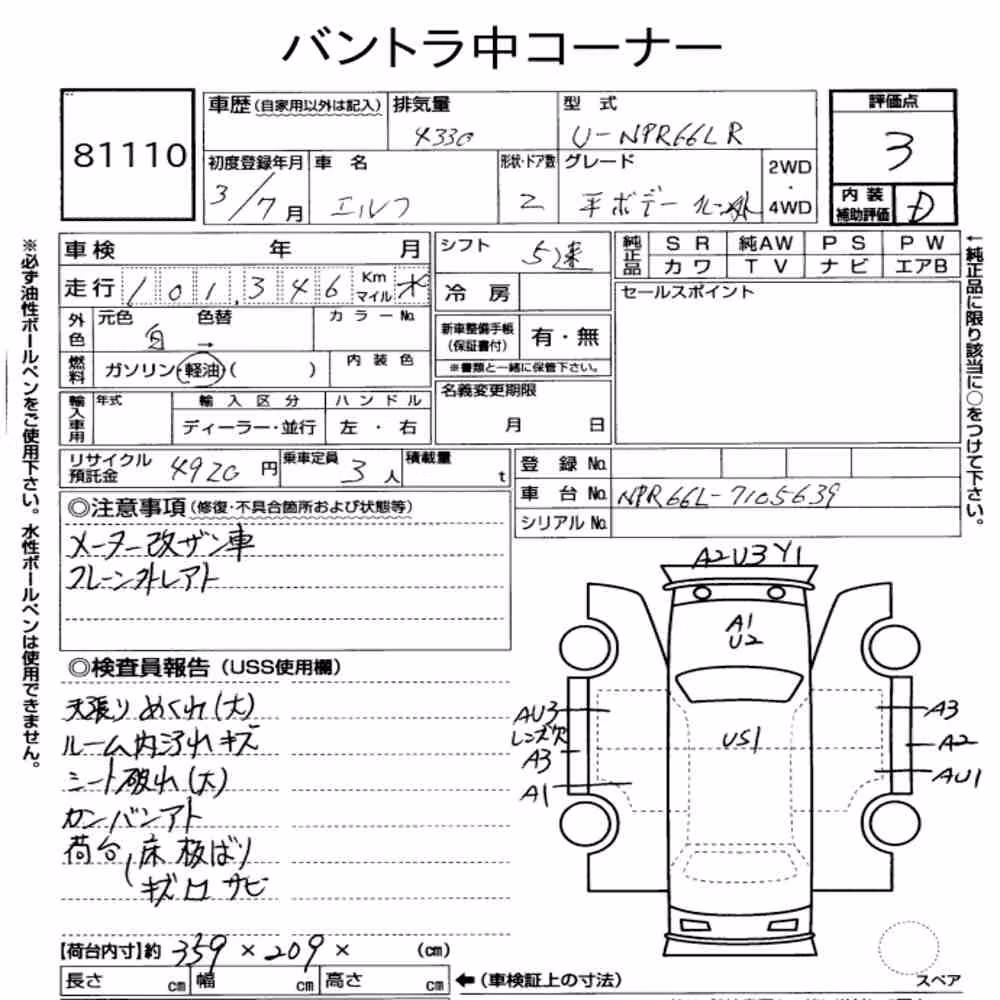 バントラ中コーナー
81110
車歴(自家用以外は記入)
排気量
4330
型 式
U-NPR66LR
評価点
3
初度登録年月
3/7月
車 名
エルフ
形状・ドア数
2
グレード
平ボデー クレーン外
2WD
・
4WD
内 装
補助評価
D
※必ず油性ボールペンをご使用下さい。水性ボールペンは使用できません。
車検 年 月
走行 101,346 Km
マイル
外色
元色 色替
白 →
カラーNo.
燃料
ガソリン・軽油( )
内 装 色
輸入車用
年式
輸 入 区 分
ハ ン ド ル
ディーラー・並行
左 ・ 右
シフト
5速
冷 房
新車整備手帳
(保証書付)
有・無
※書類と一緒に保管下さい。
名義変更期限
月 日
純正品
SR 純AW PS PW
カワ TV ナビ エアB
セールスポイント
←純正品に限り該当に○をつけて下さい。
リサイクル
預託金
4920 円
乗車定員
3人
積載量
t
登 録 No.
車 台 No.
NPR66L-7105639
シリアル No.
◎注意事項(修復・不具合箇所および状態等)
メーター改ザン車
クレーン外レアト
◎検査員報告(USS使用欄)
天張りめくれ(大)
ルーム内汚れキズ
シート破れ(大)
カンバンアト
荷台 床板ばり
キズ凹サビ
A2U3Y1
A1
U2
US1
AU3
レンズ欠
A3
A1
A3
A2
AU1
【荷台内寸】約 359 × 209 × (cm)
長さ cm 幅 cm 高さ cm ←(車検証上の寸法)
スペア